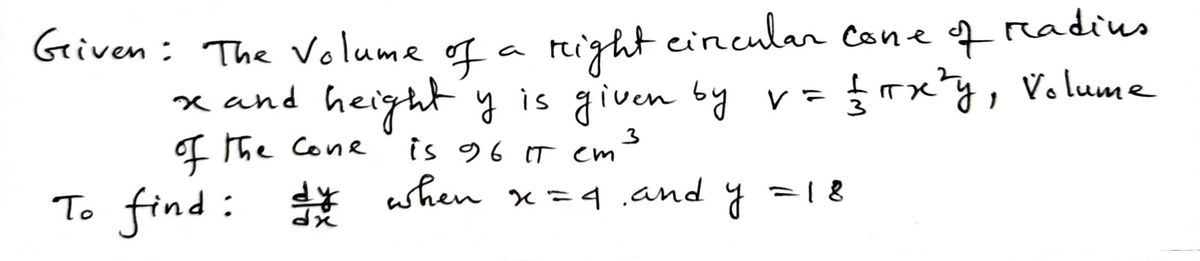 Given : The Volume of a right circular cone of radius
x and height y is given by v = 1/3 πx²y, Volume
of the cone is 96 π cm³
To find : dy/dx when x = 4 .and y = 18